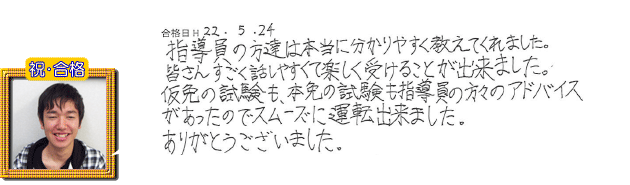 合格日 H 22.5.24
指導員の方達は本当に分かりやすく教えてくれました。
皆さんすごく話しやすくて楽しく受けることが出来ました。
仮免の試験も、本免の試験も指導員の方々のアドバイス
があったのでスムーズに運転出来ました。
ありがとうございました。
祝・合格